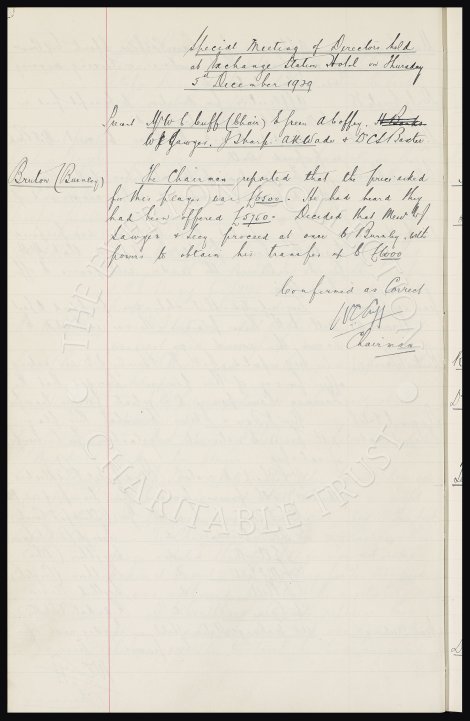 Special Meeting of Directors held
at Exchange Station Hotel on Thursday
5th December 1929
Present Mr W. C. Cuff (Chair) E Green A Coffey
W J Sawyer, J Sharp. A H Wade & D C L Baxter
Bruton (Burnley)
The Chairman reported that the price asked
for this player was £6500. He had heard they
had been offered £5760. Decided that Messrs W J
Sawyer & Secy. proceed at once to Burnley with
powers to obtain his transfer up to £6000
Confirmed as Correct
W C Cuff
Chairman
THE
CHARITABLE TRUST